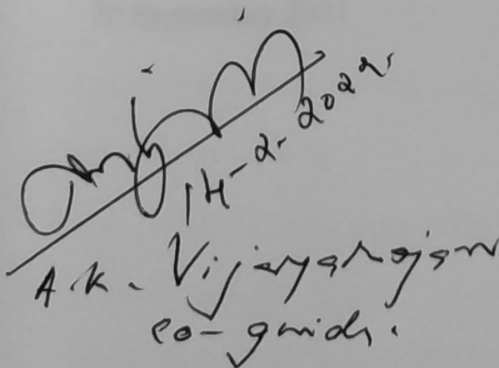 14-2-2022
A.K. Vijayarajan
co-guide.